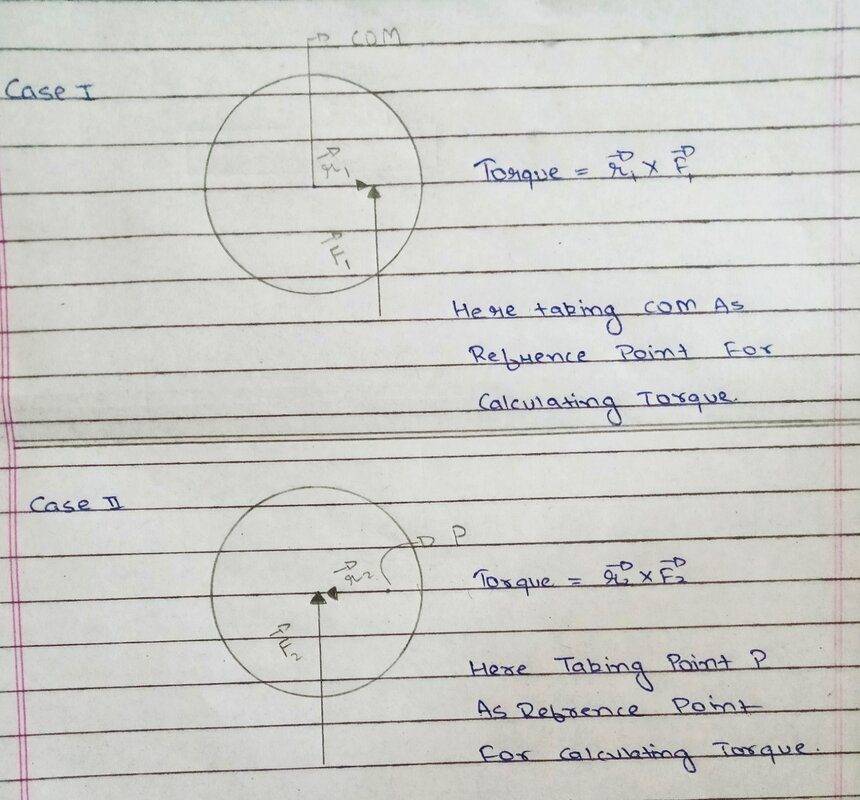 COM
Case I
r₁
Torque = r₁ × F₁
F₁
Here taking COM As
Refrence Point For
Calculating Torque.
Case II
P
r₂
Torque = r₂ × F₂
F₂
Here Taking Point P
As Refrence Point
For Calculating Torque.